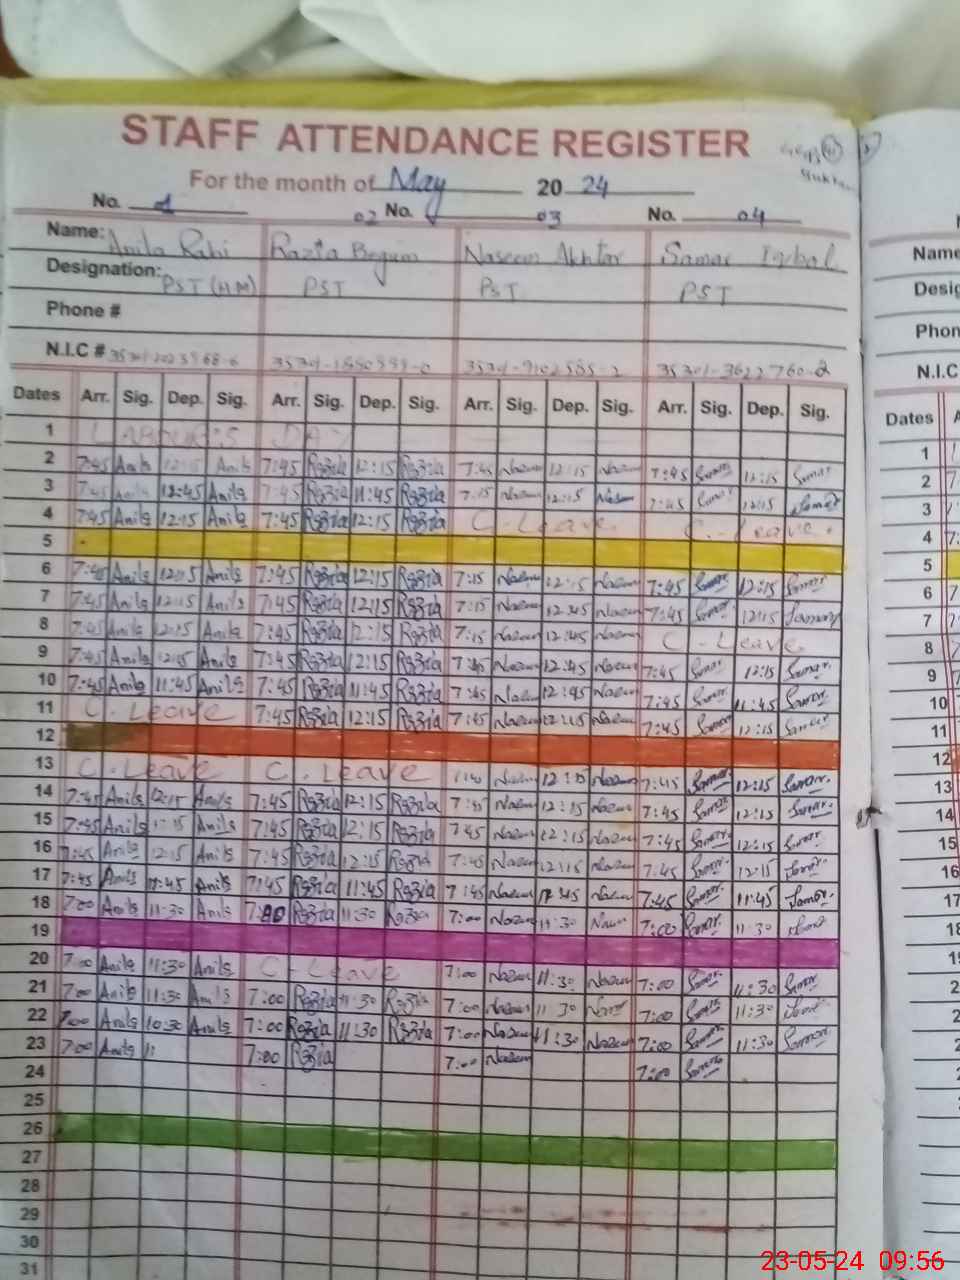 STAFF ATTENDANCE REGISTER
For the month of May 2024
No. 1 02 No. 03 No. 04
Name: Anila Rabi Razia Begum Naseem Akhtar Samar Iqbal
Designation: PST (H.M) PST PST PST
Phone #
N.I.C #
Dates Arr. Sig. Dep. Sig. Arr. Sig. Dep. Sig. Arr. Sig. Dep. Sig. Arr. Sig. Dep. Sig.
1 LABOUR'S DAY
2 7:45 Anila 12:15 Anila 7:45 Razia 12:15 Razia 7:45 Naseem 12:15 Naseem 7:45 Samar 12:15 Samar
3 7:45 Anila 12:45 Anila 7:45 Razia 11:45 Razia 7:15 Naseem 12:15 Naseem 7:45 Samar 12:15 Samar
4 7:45 Anila 12:15 Anila 7:45 Razia 12:15 Razia C-Leave C-Leave
5
6 7:45 Anila 12:15 Anila 7:45 Razia 12:15 Razia 7:15 Naseem 12:15 Naseem 7:45 Samar 12:15 Samar
7 7:45 Anila 12:15 Anila 7:45 Razia 12:15 Razia 7:15 Naseem Naseem 7:45 Samar 12:15 Samar
8 7:45 Anila 12:15 Anila 7:45 Razia 12:15 Razia 7:15 Naseem 12:45 Naseem C-Leave
9 7:45 Anila 12:15 Anila 7:45 Razia 12:15 Razia Naseem 12:45 Naseem 7:45 Samar 12:15 Samar
10 7:45 Anila 11:45 Anila 7:45 Razia 11:45 Razia 7:45 Naseem 12:45 Naseem 7:45 Samar 11:45 Samar
11 C. Leave 7:45 Razia 12:15 Razia 7:45 Naseem 12:15 Naseem 7:45 Samar 12:15 Samar
12
13 C. Leave C. Leave Naseem 12:15 Naseem 7:45 Samar 12:15 Samar
14 7:45 Anila 12:15 Anila 7:45 Razia 12:15 Razia 7:45 Naseem 12:15 Naseem 7:45 Samar 12:15 Samar
15 7:45 Anila 12:15 Anila 7:45 Razia 12:15 Razia 7:45 Naseem 12:15 Naseem 7:45 Samar 12:15 Samar
16 7:45 Anila 12:15 Anila 7:45 Razia 12:15 Razia 7:45 Naseem 12:15 Naseem 7:45 Samar 12:15 Samar
17 7:45 Anila 11:45 Anila 7:45 Razia 11:45 Razia 7:45 Naseem Naseem 7:45 Samar 11:45 Samar
18 7:00 Anila 11:30 Anila 7:00 Razia 11:30 Razia 7:00 Naseem 11:30 Naseem 7:00 Samar 11:30 Samar
19
20 7:00 Anila 11:30 Anila C-Leave 7:00 Naseem 11:30 Naseem 7:00 Samar 11:30 Samar
21 7:00 Anila 11:30 Anila 7:00 Razia 11:30 Razia 7:00 Naseem 11:30 Naseem 7:00 Samar 11:30 Samar
22 7:00 Anila 10:30 Anila 7:00 Razia 11:30 Razia 7:00 Naseem 11:30 Naseem 7:00 Samar 11:30 Samar
23 7:00 Anila 11: 7:00 Razia 7:00 Naseem 7:00 Samar
24
25
26
27
28
29
30
31
Name
Desig
Phon
N.I.C
Dates A
1
2
3
4
5
6
7
8
9
10
11
12
13
14
15
16
17
18
23-05-24 09:56